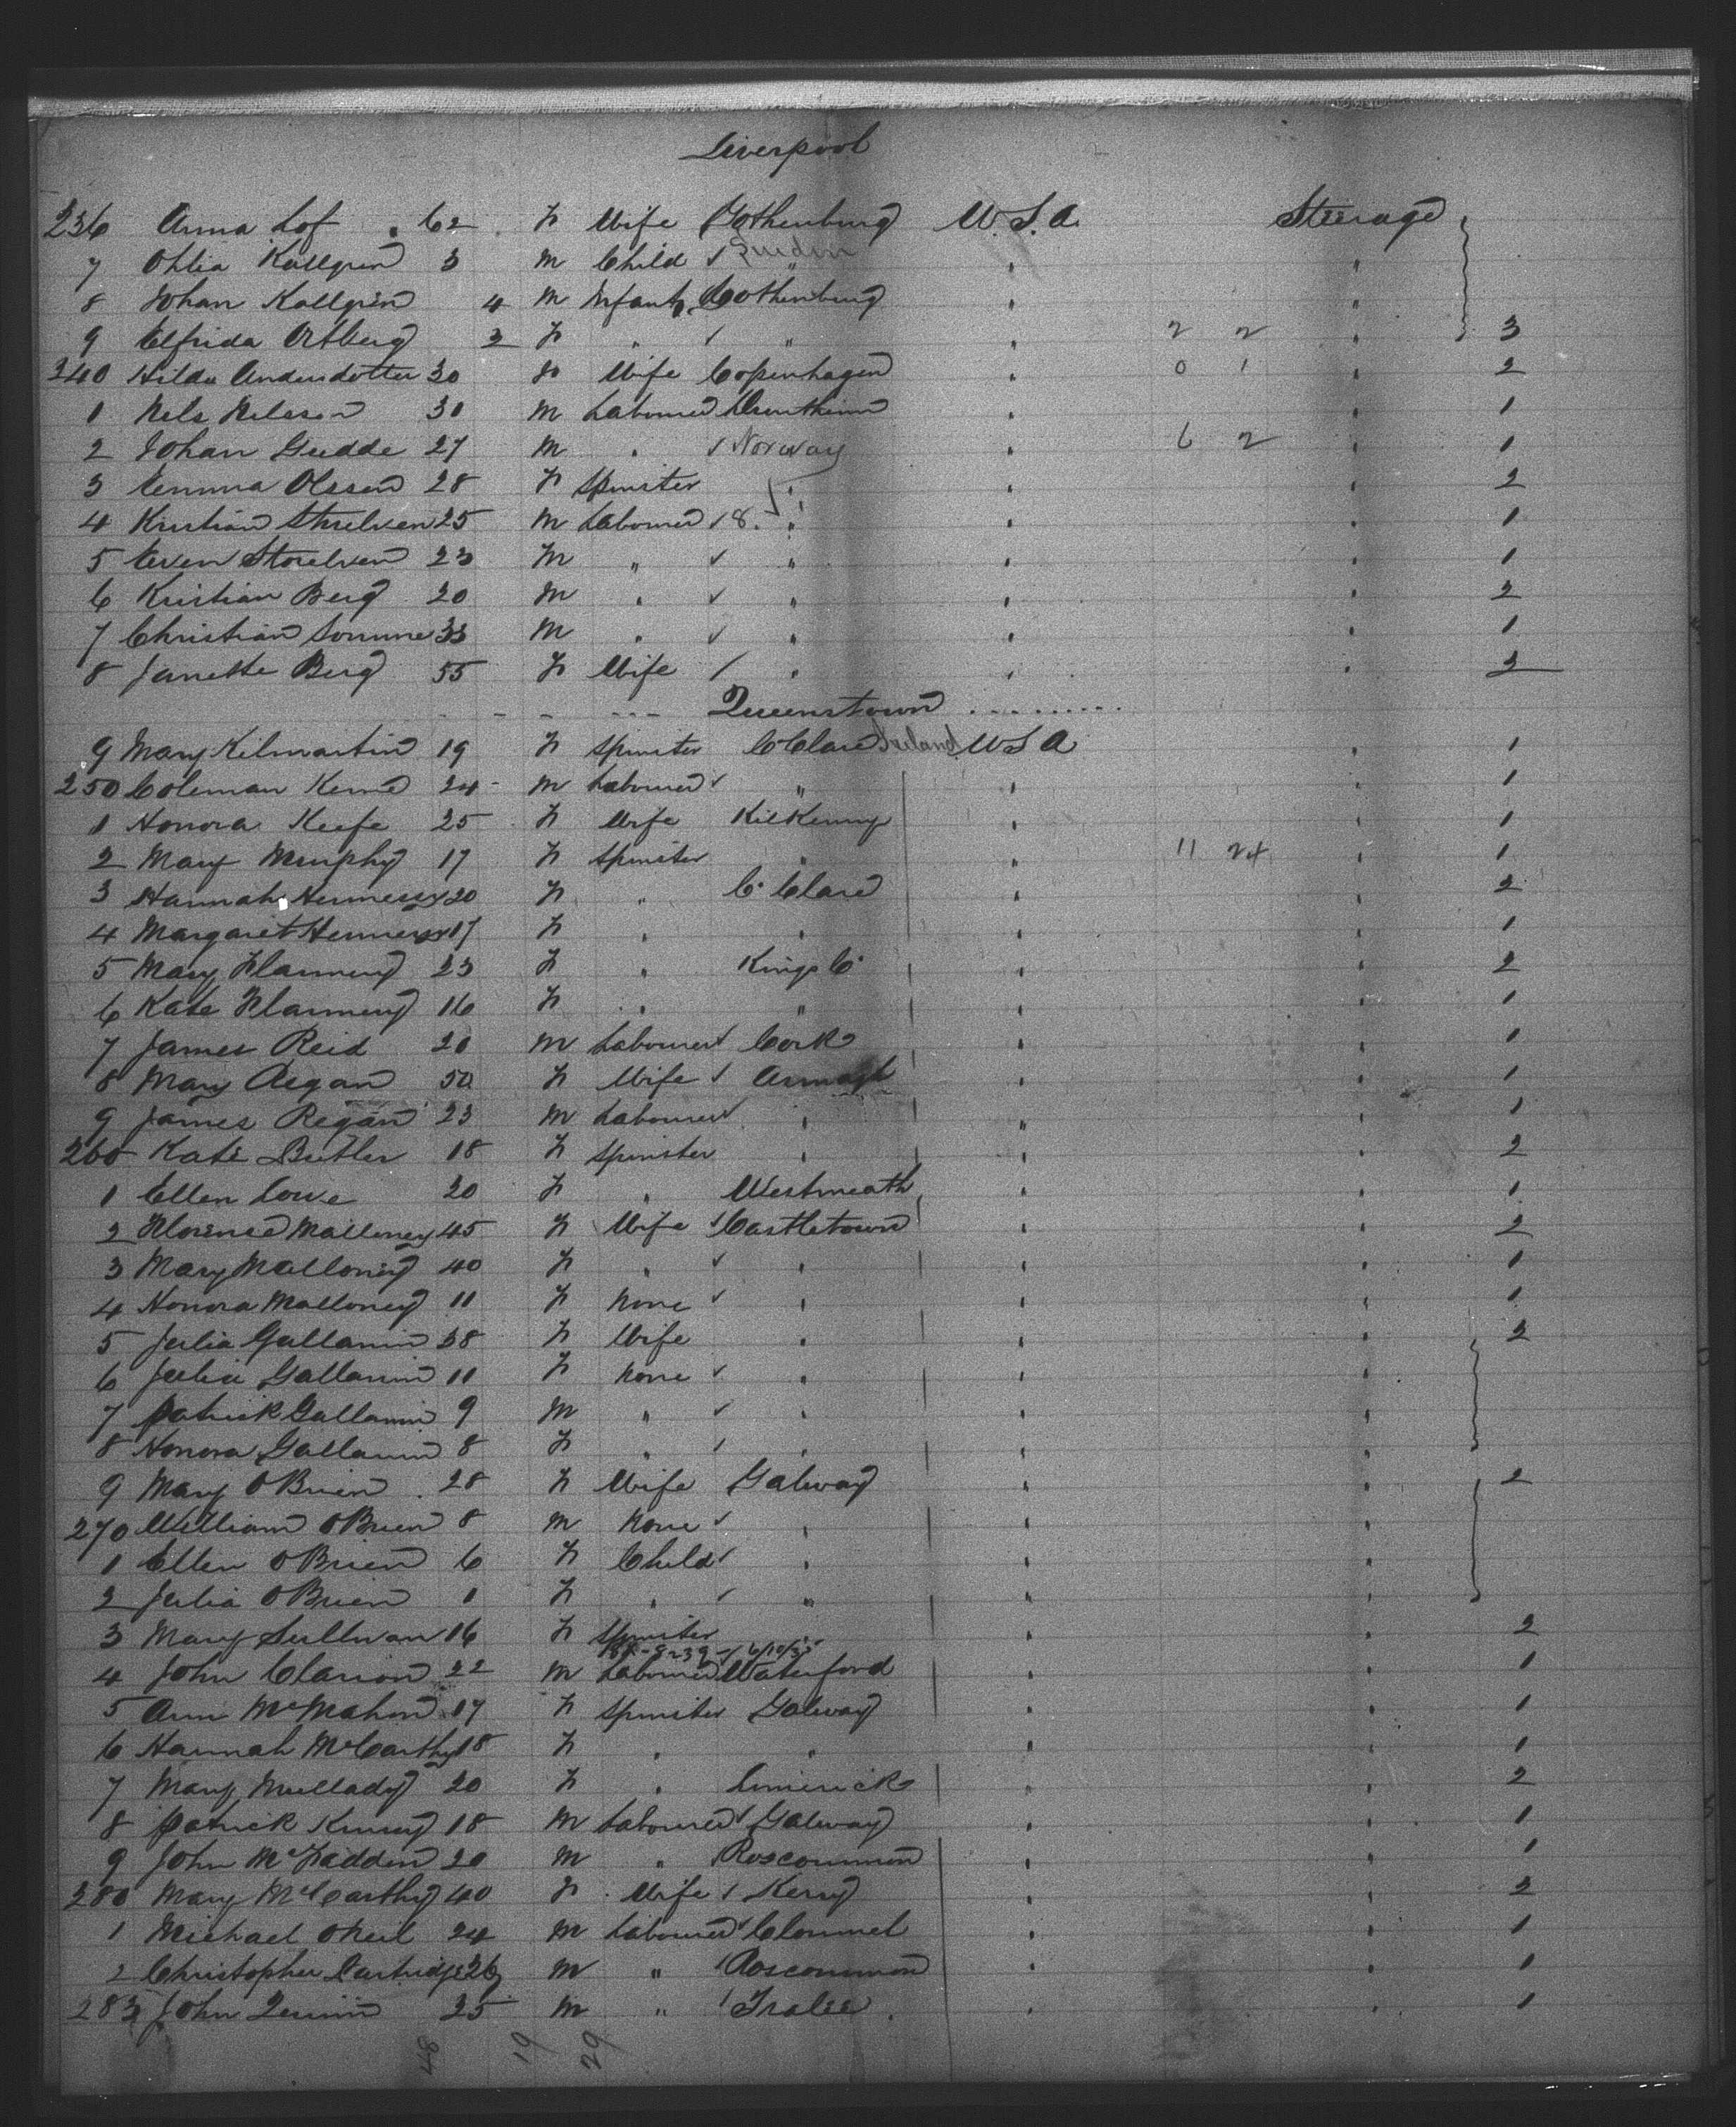 Liverpool
236 Anna Lof 62 F Wife Gothenburg U.S.A. Steerage
7 Ohlia Kallgren 3 M Child " Sweden " "
8 Johan Kallgren 4 M Infant Gothenburg " "
9 Elfrida Ortberg 3 F " " " 2 2 " 3
240 Hilda Andersdotter 30 F Wife Copenhagen " 0 1 " 2
1 Nels Nelsson 30 M Labourer Drontheim " " 1
2 Johan Gudde 27 M " Norway " 6 2 " 1
3 Emma Olssen 28 F Spinster " " " 2
4 Kristian 25 M Labourer 8. " " " 1
5 Even Storelven 23 M " " " " 1
6 Kristian Berg 20 M " " " " 2
7 Christian Somme 33 M " " " " 1
8 Janette Berg 55 F Wife " " " 2
Queenstown
9 Mary Kilmartin 19 F Spinster Co Clare Ireland U S A " 1
250 Coleman 24 M Labourer " " " 1
1 Honora Keefe 25 F Wife KilKenny " " 1
2 Mary Murphy 17 F Spinster " " 11 24 " 1
3 Hannah Hennessy 20 F " Co Clare " " 2
4 Margaret Hennessy 17 F " " " " 1
5 Mary Flannery 23 F " Kings Co " " 2
6 Kate Flannery 16 F " " " " 1
7 James Reid 20 M Labourer Cork " " 1
8 Mary Regan 50 F Wife Armagh " " 1
9 James Regan 23 M Labourer " " " 1
260 Kate Butler 18 F Spinster " " " 2
1 Ellen Lowe 20 F " Westmeath " " 1
2 Florence Malloney 45 F Wife Castletown " " 2
3 Mary Malloney 40 F " " " " 1
4 Honora Malloney 11 F None " " " 1
5 Julia Gallanin 38 F Wife " " " 2
6 Julia Gallanin 11 F None " " "
7 Patrick Gallanin 9 M " " " "
8 Honora Gallanin 8 F " " " "
9 Mary O Brien 28 F Wife Galway " " 2
270 William O Brien 8 M None " " "
1 Ellen O Brien 6 F Child " " "
2 Julia O Brien 1 F " " " "
3 Mary Sullivan 16 F Spinster " " " 2
4 John Clarion 22 M Labourer Waterford " " 1
5 Ann McMahon 17 F Spinster Galway " " 1
6 Hannah McCarthy 18 F " " " " 1
7 Mary Mullady 20 F " Limerick " " 2
8 Patrick 18 M Labourer Galway " " 1
9 John McFadden 20 M " Roscommon " " 1
280 Mary McCarthy 40 F Wife Kerry " " 2
1 Michael ONeil 24 M Labourer Clonmel " " 1
2 Christopher Cartridge 26 M " Roscommon " " 1
283 John Quinn 25 M " Tralee " " 1
19 29